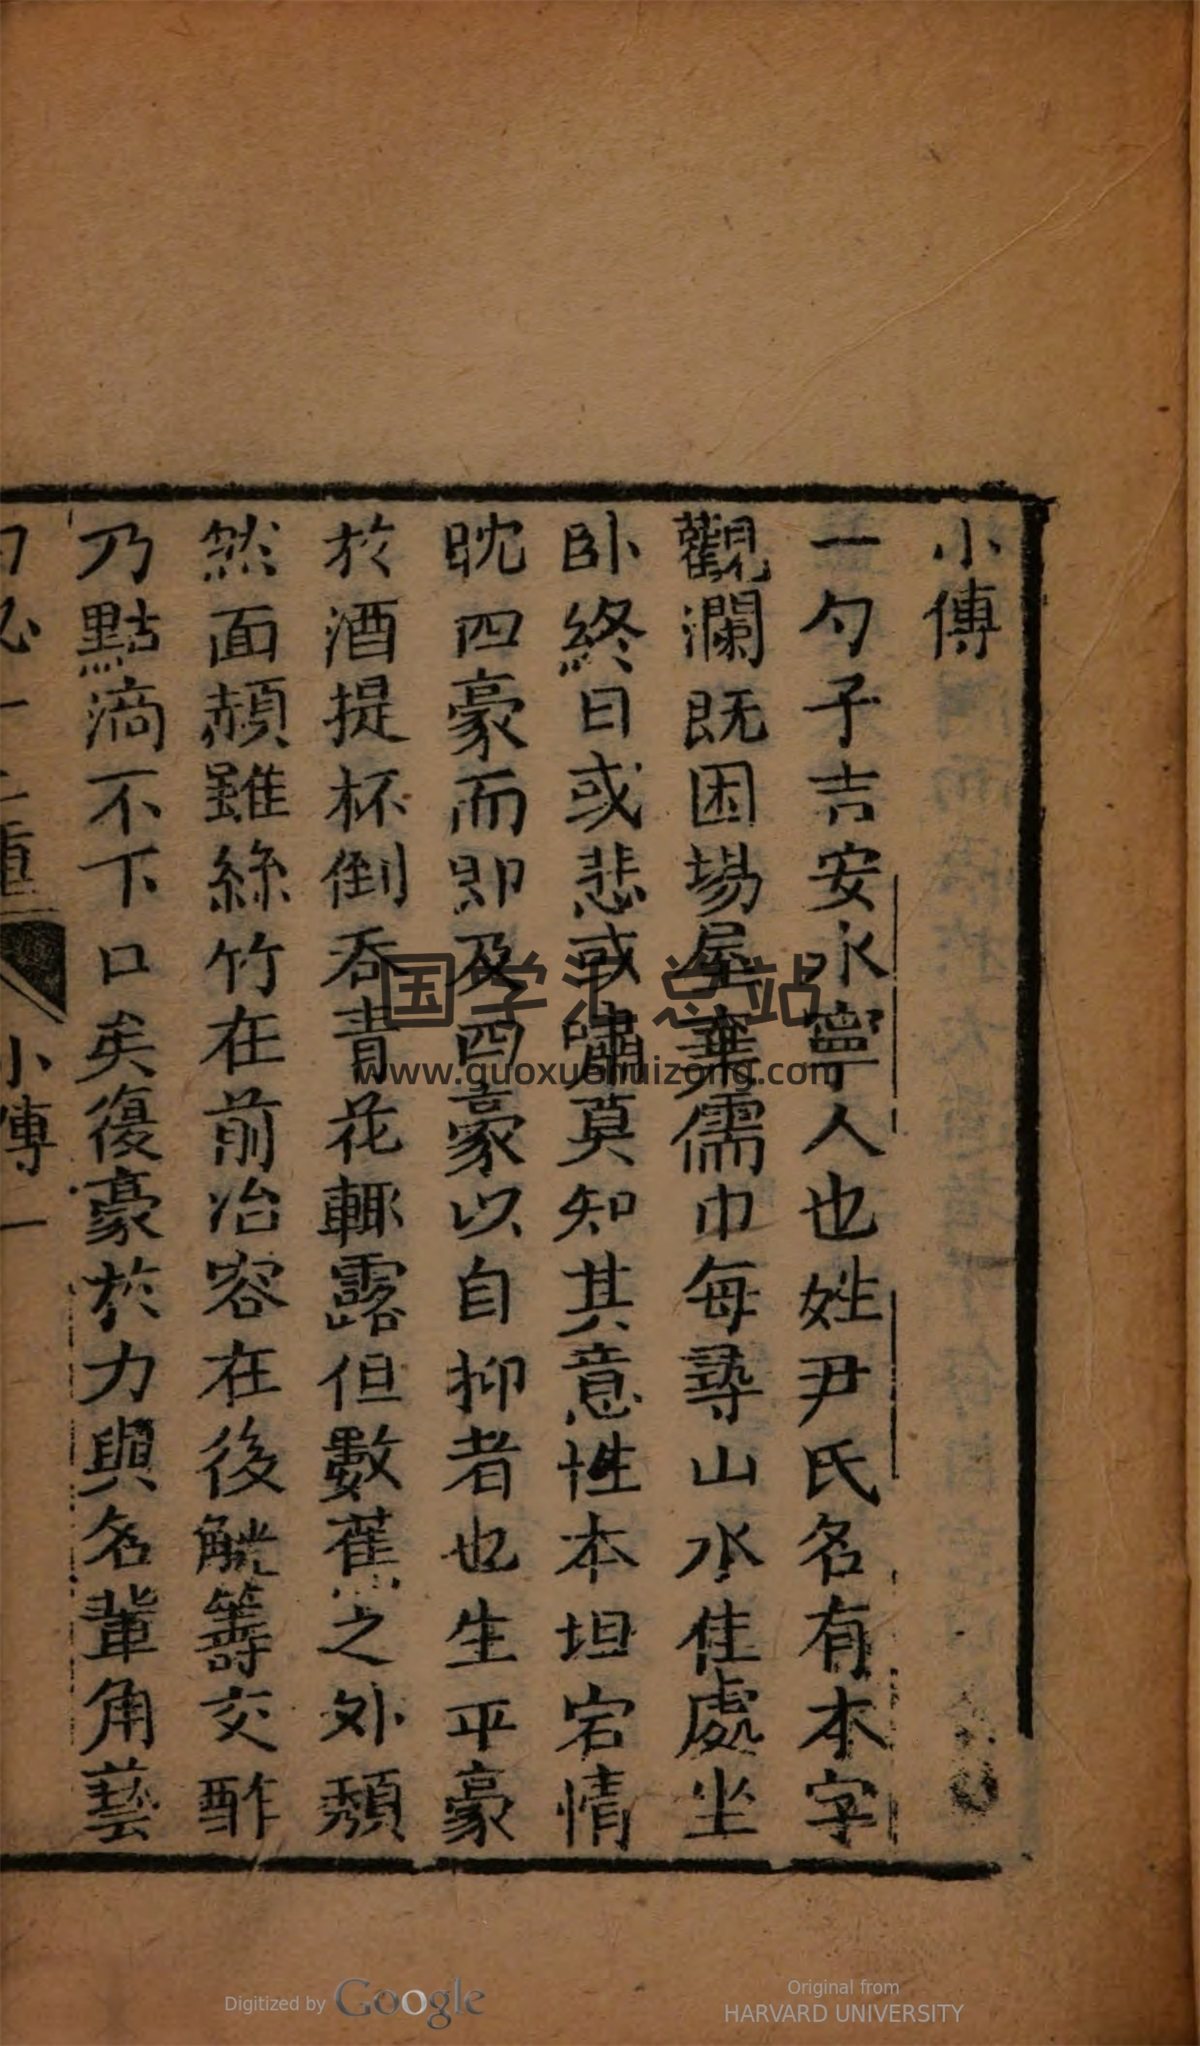 小傳
一勺子吉安永寧人也姓尹氏名有本字
觀瀾既困場屋棄儒巾每尋山水佳處坐
臥終日或悲或嘯莫知其意性本坦宕情
眈四豪而即及四豪以自抑者也生平豪
於酒提杯倒吞青花輒露但數蕉之外頹
然面赬雖絲竹在前冶容在後觥籌交酢
乃點滴不下口矣復豪於力與名輩角藝
小傳 一
国学汇总站
www.guoxuehuizong.com
Digitized by Google
Original from
HARVARD UNIVERSITY